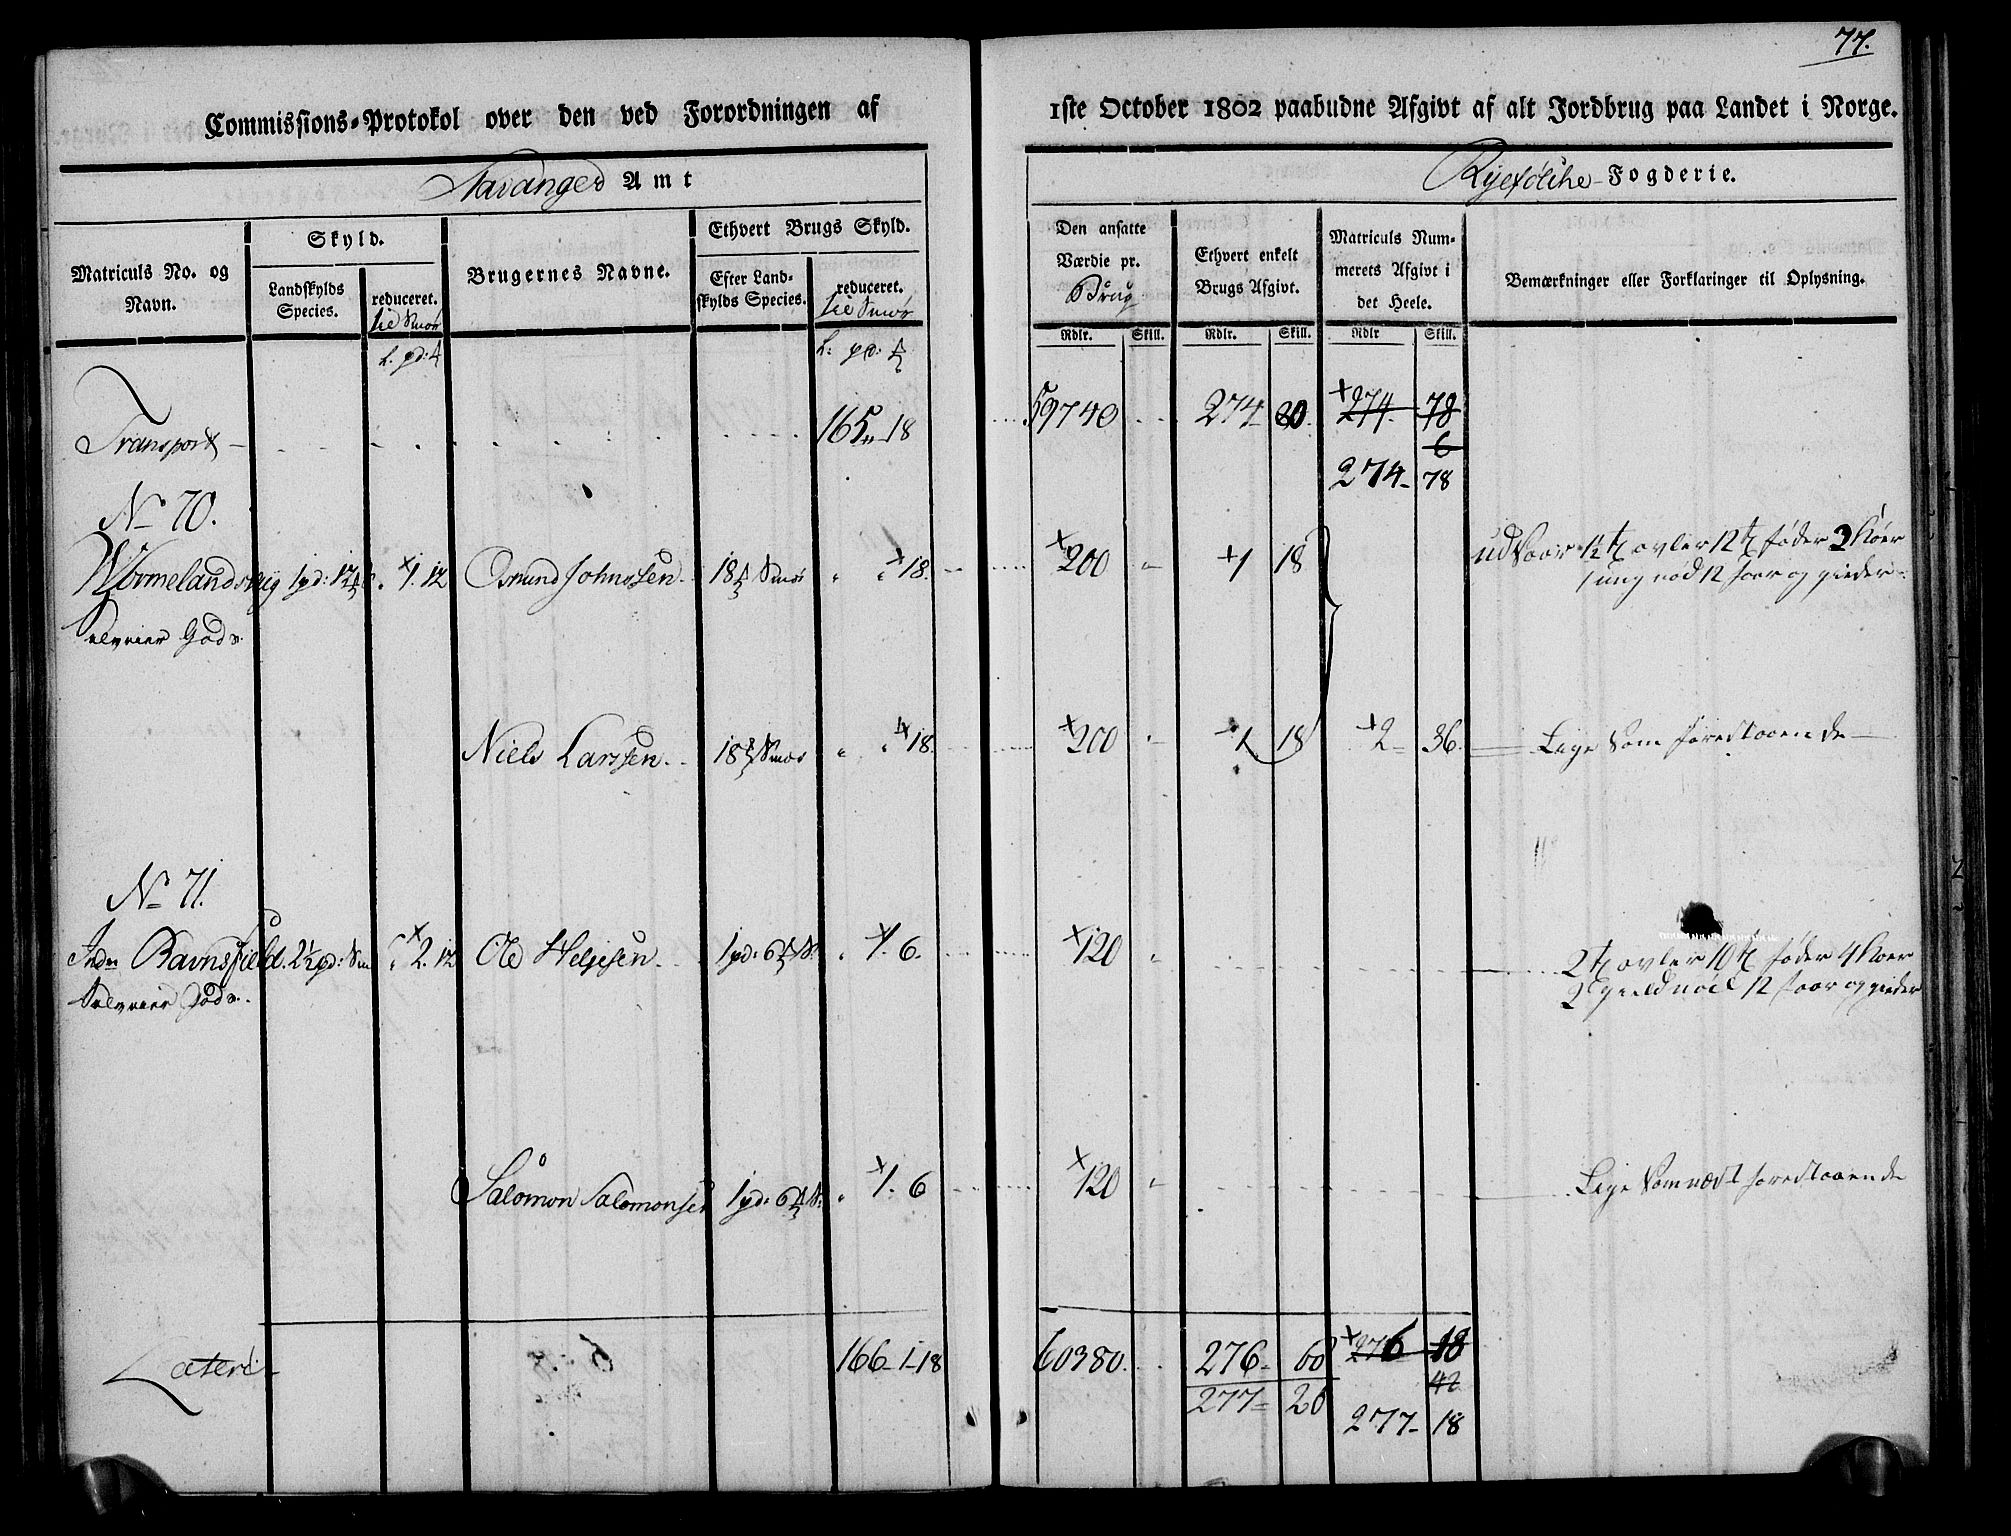 77.
Commissions-Protokol over den ved Forordningen af 1ste October 1802 paabudne Afgivt af alt Jordbrug paa Landet i Norge.
Stavanger Amt
Ryefölche Fogderie.
Matriculs No. og Navn.
Skyld.
Landskylds Species.
reduceret. til Smør
L: pd:
Brugernes Navne.
Ethvert Brugs Skyld.
Efter Landskylds Species.
reduceret. til Smør
L: pd:
Den ansatte Værdie pr. Brug
Rdlr. Skill.
Ethvert enkelt Brugs Afgivt.
Rdlr. Skill.
Matriculs Nummerets Afgivt i det Heele.
Rdlr Skill.
Bemærkninger eller Forklaringer til Oplysning.
Transport 165 „ 18 59740 274 80 274 78
6
274 78
No 70.
1pd: 12 1. 12 Osmund Johnssen 18 Smør „ „ 18. 200 „ 1 18 udsaar 1½ avler 12 føder 3 Kiøer
1 ung nød 12 faar og gieder
Selveier Gods
Niels Larssen 18 Smør „ „ 18. 200 „ 1 18 2 36. Lige som forestaaende
No 71.
Indre Ravnsfield. 2½ pd: Sm „ 2. 12 Ole Helgesen 1pd: 6 „ 1. 6. 120 „ 2 avler 10 føder 4 Kiøer
Selveier Gods. 2 gieldnød 12 faar og gieder
Salomon Salomonsen 1pd: 6 „ 1. 6 120 „ Lige som næst forestaaende
Latere 166 1 18 60380. 276 60 276 18
42
277 26 277 18